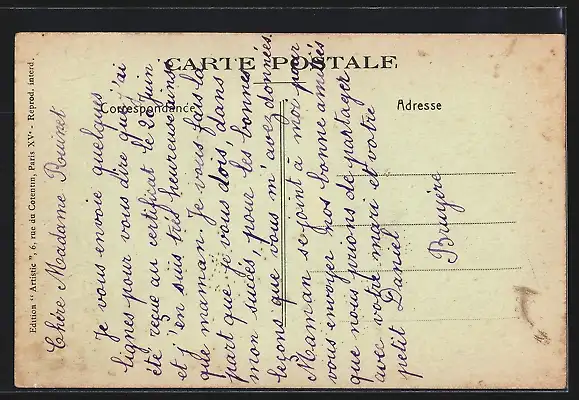 CARTE POSTALE
Correspondance
Adresse
Edition "Artistic", 6, rue du Cotentin, Paris XVe - Reprod. interd.
Chère Madame
Je vous envoie quelques
lignes pour vous dire que j'ai
été reçue au certificat le 20 juin
et j'en suis très heureuse ainsi
que maman. Je vous fais la
part que je vous dois, dans
mon succès, pour les bonnes
leçons que vous m'avez données.
Maman se joint à moi pour
vous envoyer nos bonne amitiés
que nous prions de partager
avec votre mari et votre
petit Daniel
Bruyère